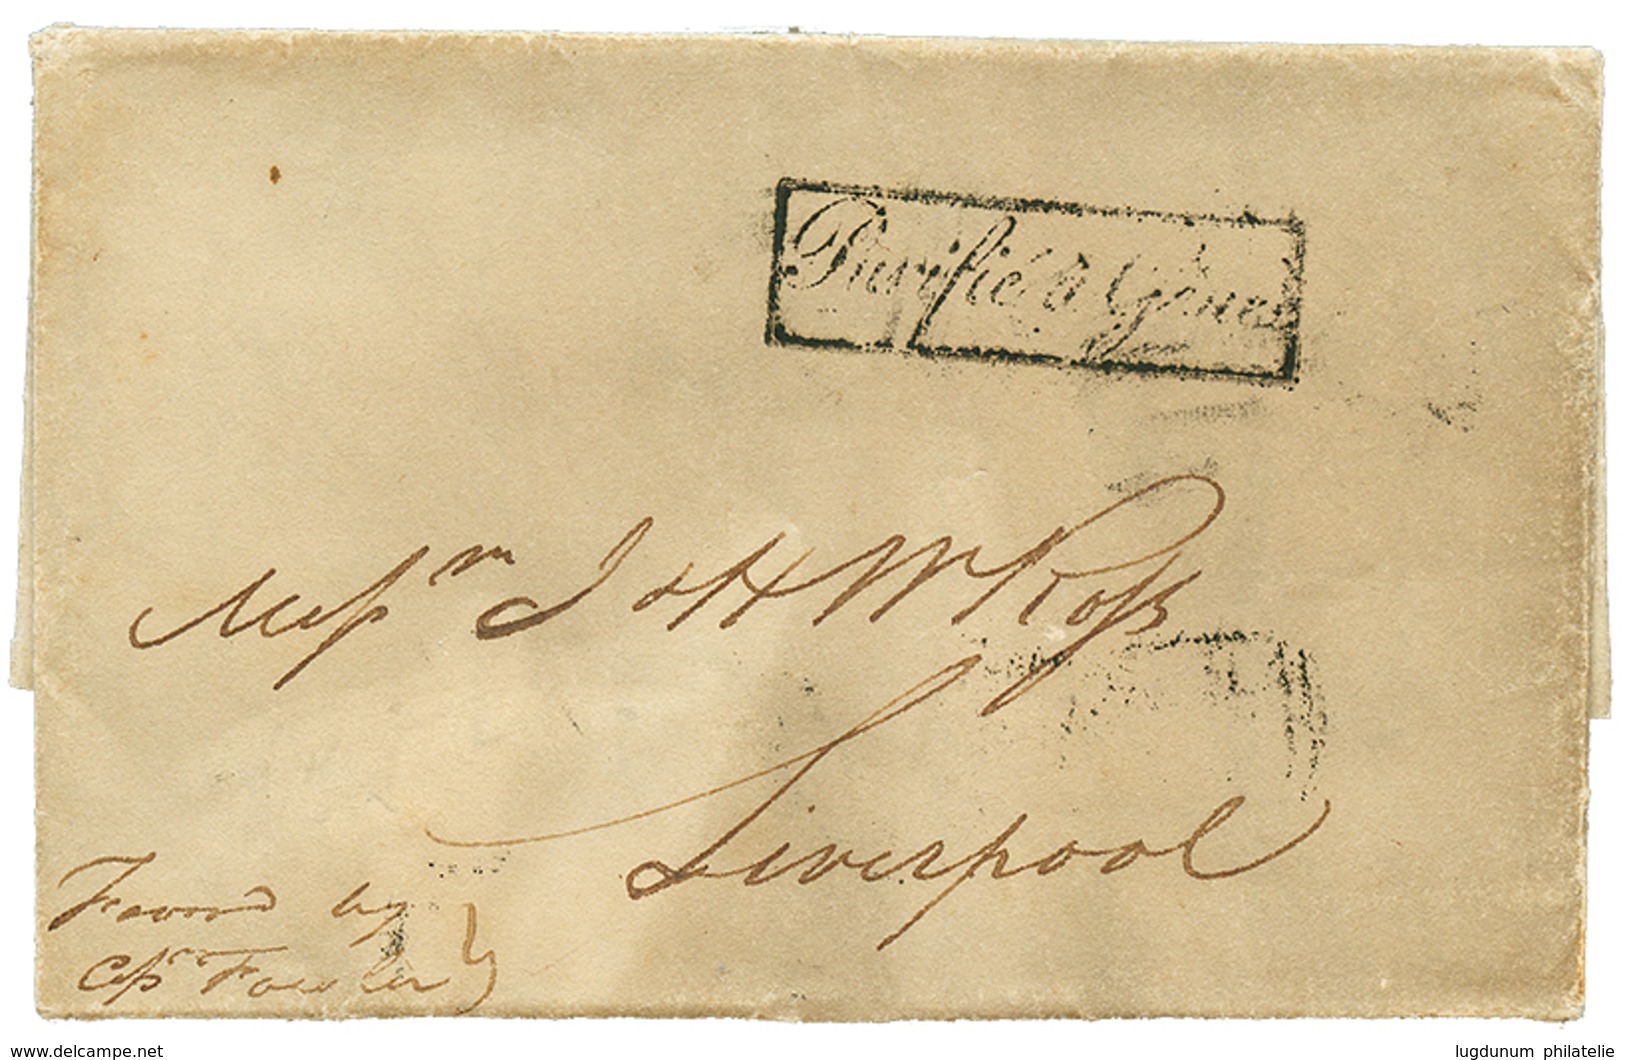 Purifié à Gênes
Mess.rs J & H W Ross
Liverpool
Favor'd by
Cap.t Fowler
www.delcampe.net
lugdunum philatelie